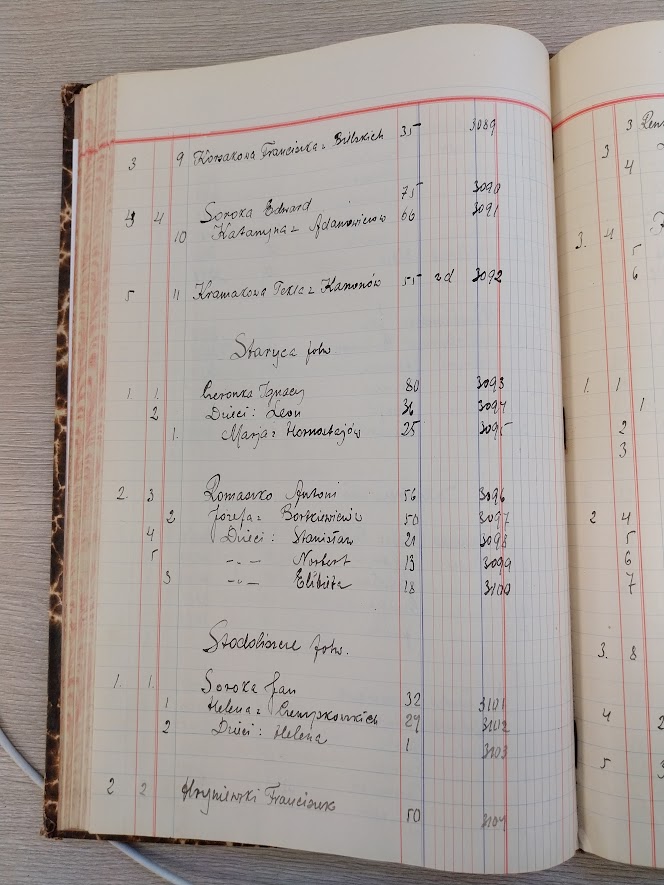 3 9 Korsakowa Franciszka z Bilskich 35 3089
4 4 Soroka Edward 75 3090
10 Katarzyna z Adamowiczów 66 3091
5 11 Kramakowa Tekla z Kamonów 55 zd 3092
Staryca folw
1. 1. Czeronka Ignacy 80 3093
2 Dzieci: Leon 36 3094
1. Marja z Hornostajów 25 3095
2. 3 Romaszko Antoni 56 3096
2 Józefa z Borkiewiczów 50 3097
4 Dzieci: Stanisław 21 3098
5 -"- Norbert 13 3099
3 -"- Elżbieta 18 3100
Stodoliszcze folw.
1. 1. Soroka Jan 32 3101
1 Helena z 29 3102
2 Dzieci: Helena 1 3103
2 2 Hryniewski Franciszek 50 3104
3
3
4
3. 4
5
6
1. 1
1
2
3
2 4
5
6
7
3. 8
4 2
5 3